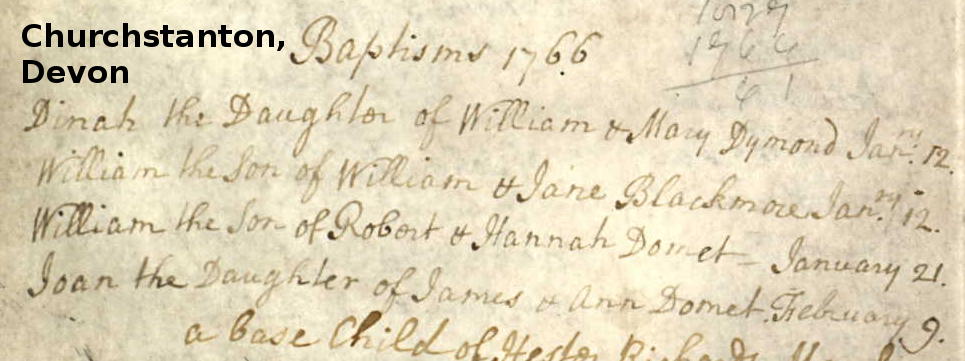 Churchstanton,
Devon
Baptisms 1766
1827
1766
61
Dinah the Daughter of William & Mary Dymond Janry. 12.
William the Son of William & Jane Blackmore Janry. 12.
William the Son of Robert & Hannah Domet - January 21.
Joan the Daughter of James & Ann Domet. February 9.
a base Child of Hester Richards